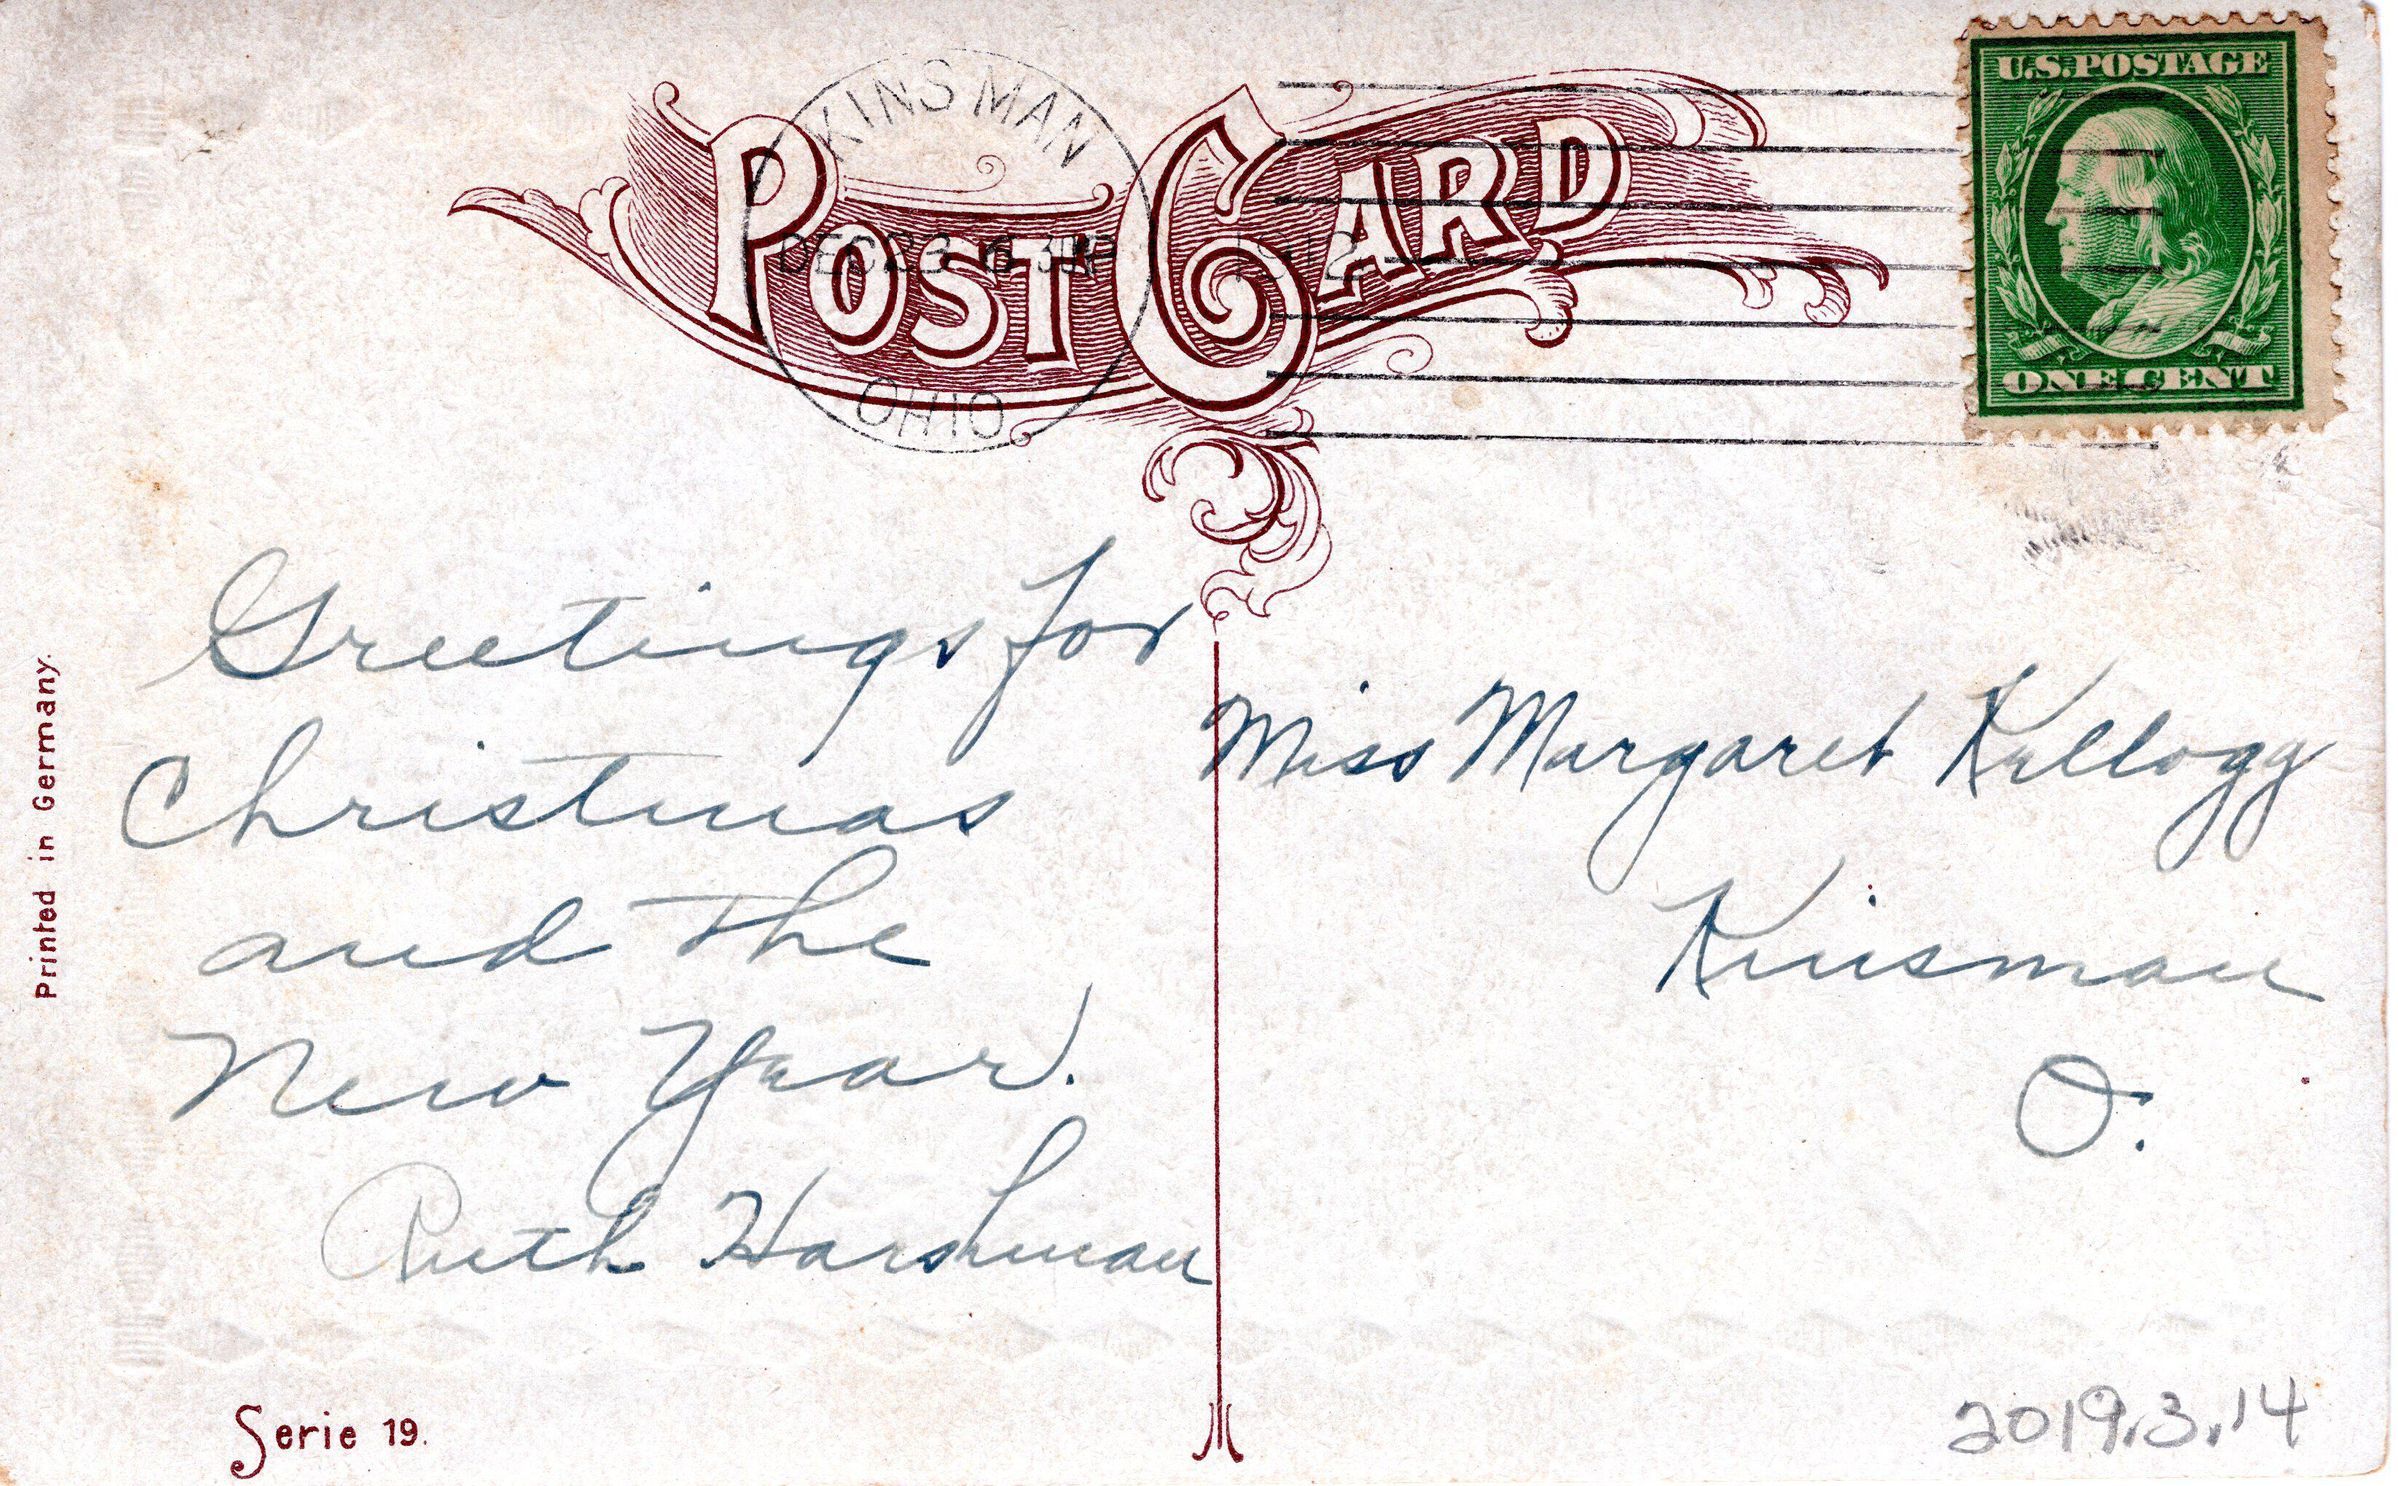 POST CARD
KINSMAN
DEC 23 6 30P 1912
OHIO
U.S. POSTAGE
ONE CENT
Greetings for
Christmas
and the
New Year.
Ruth Harshman
Miss Margaret Kellogg
Kinsman
O.
Printed in Germany.
Serie 19.
2019.3.14